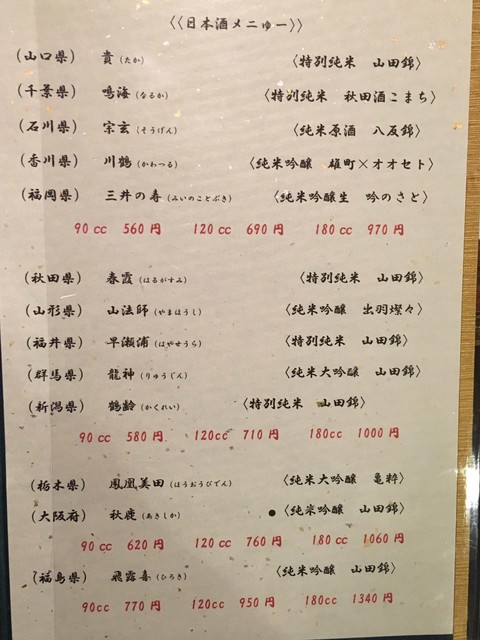 〈〈日本酒メニゅー〉〉
(山口県) 貴(たか) 〈特別純米 山田錦〉
(千葉県) 鳴海(なるか) 〈特別純米 秋田酒こまち〉
(石川県) 宗玄(そうげん) 〈純米原酒 八反錦〉
(香川県) 川鶴(かわつる) 〈純米吟醸 雄町×オオセト〉
(福岡県) 三井の寿(みいのことぶき) 〈純米吟醸生 吟のさと〉
90cc 560円 120cc 690円 180cc 970円
(秋田県) 春霞(はるがすみ) 〈特別純米 山田錦〉
(山形県) 山法師(やまほうし) 〈純米吟醸 出羽燦々〉
(福井県) 早瀬浦(はやせうら) 〈特別純米 山田錦〉
(群馬県) 龍神(りゅうじん) 〈純米大吟醸 山田錦〉
(新潟県) 鶴齢(かくれい) 〈特別純米 山田錦〉
90cc 580円 120cc 710円 180cc 1000円
(栃木県) 鳳凰美田(ほうおうびでん) 〈純米大吟醸 亀粋〉
(大阪府) 秋鹿(あきしか) ●〈純米吟醸 山田錦〉
90cc 620円 120cc 760円 180cc 1060円
(福島県) 飛露喜(ひろき) 〈純米吟醸 山田錦〉
90cc 770円 120cc 950円 180cc 1340円